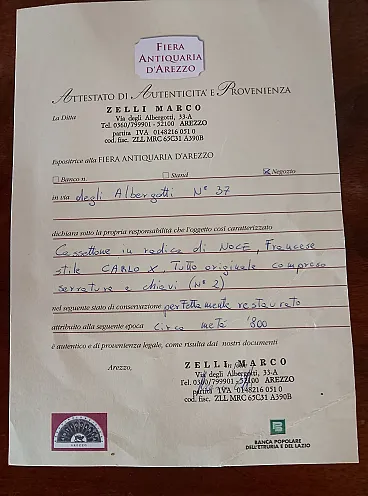 FIERA
ANTIQUARIA
D'AREZZO
ATTESTATO DI AUTENTICITA' E PROVENIENZA
La Ditta
ZELLI MARCO
Via degli Albergotti, 33-A
Tel. 0360/799901 - 52100 AREZZO
partita IVA 0148216 051 0
cod. fisc. ZLL MRC 65C31 A390B
Espositrice alla FIERA ANTIQUARIA D'AREZZO
Banco n. Stand Negozio
in via degli Albergotti N° 37
dichiara sotto la propria responsabilità che l'oggetto così caratterizzato
Cassettone in radica di NOCE, Francese
stile CARLO X, Tutto originale compreso
serrature e chiavi (N° 2)
nel seguente stato di conservazione perfettamente restaurato
attribuito alla seguente epoca Circa metà '800
è autentico e di provenienza legale, come risulta dai nostri documenti
Arezzo,
ZELLI MARCO
Via degli Albergotti, 33-A
Tel. 0360/799901 - 52100 AREZZO
partita IVA 0148216 051 0
cod. fisc. ZLL MRC 65C31 A390B
AREZZO
BANCA POPOLARE
DELL'ETRURIA E DEL LAZIO